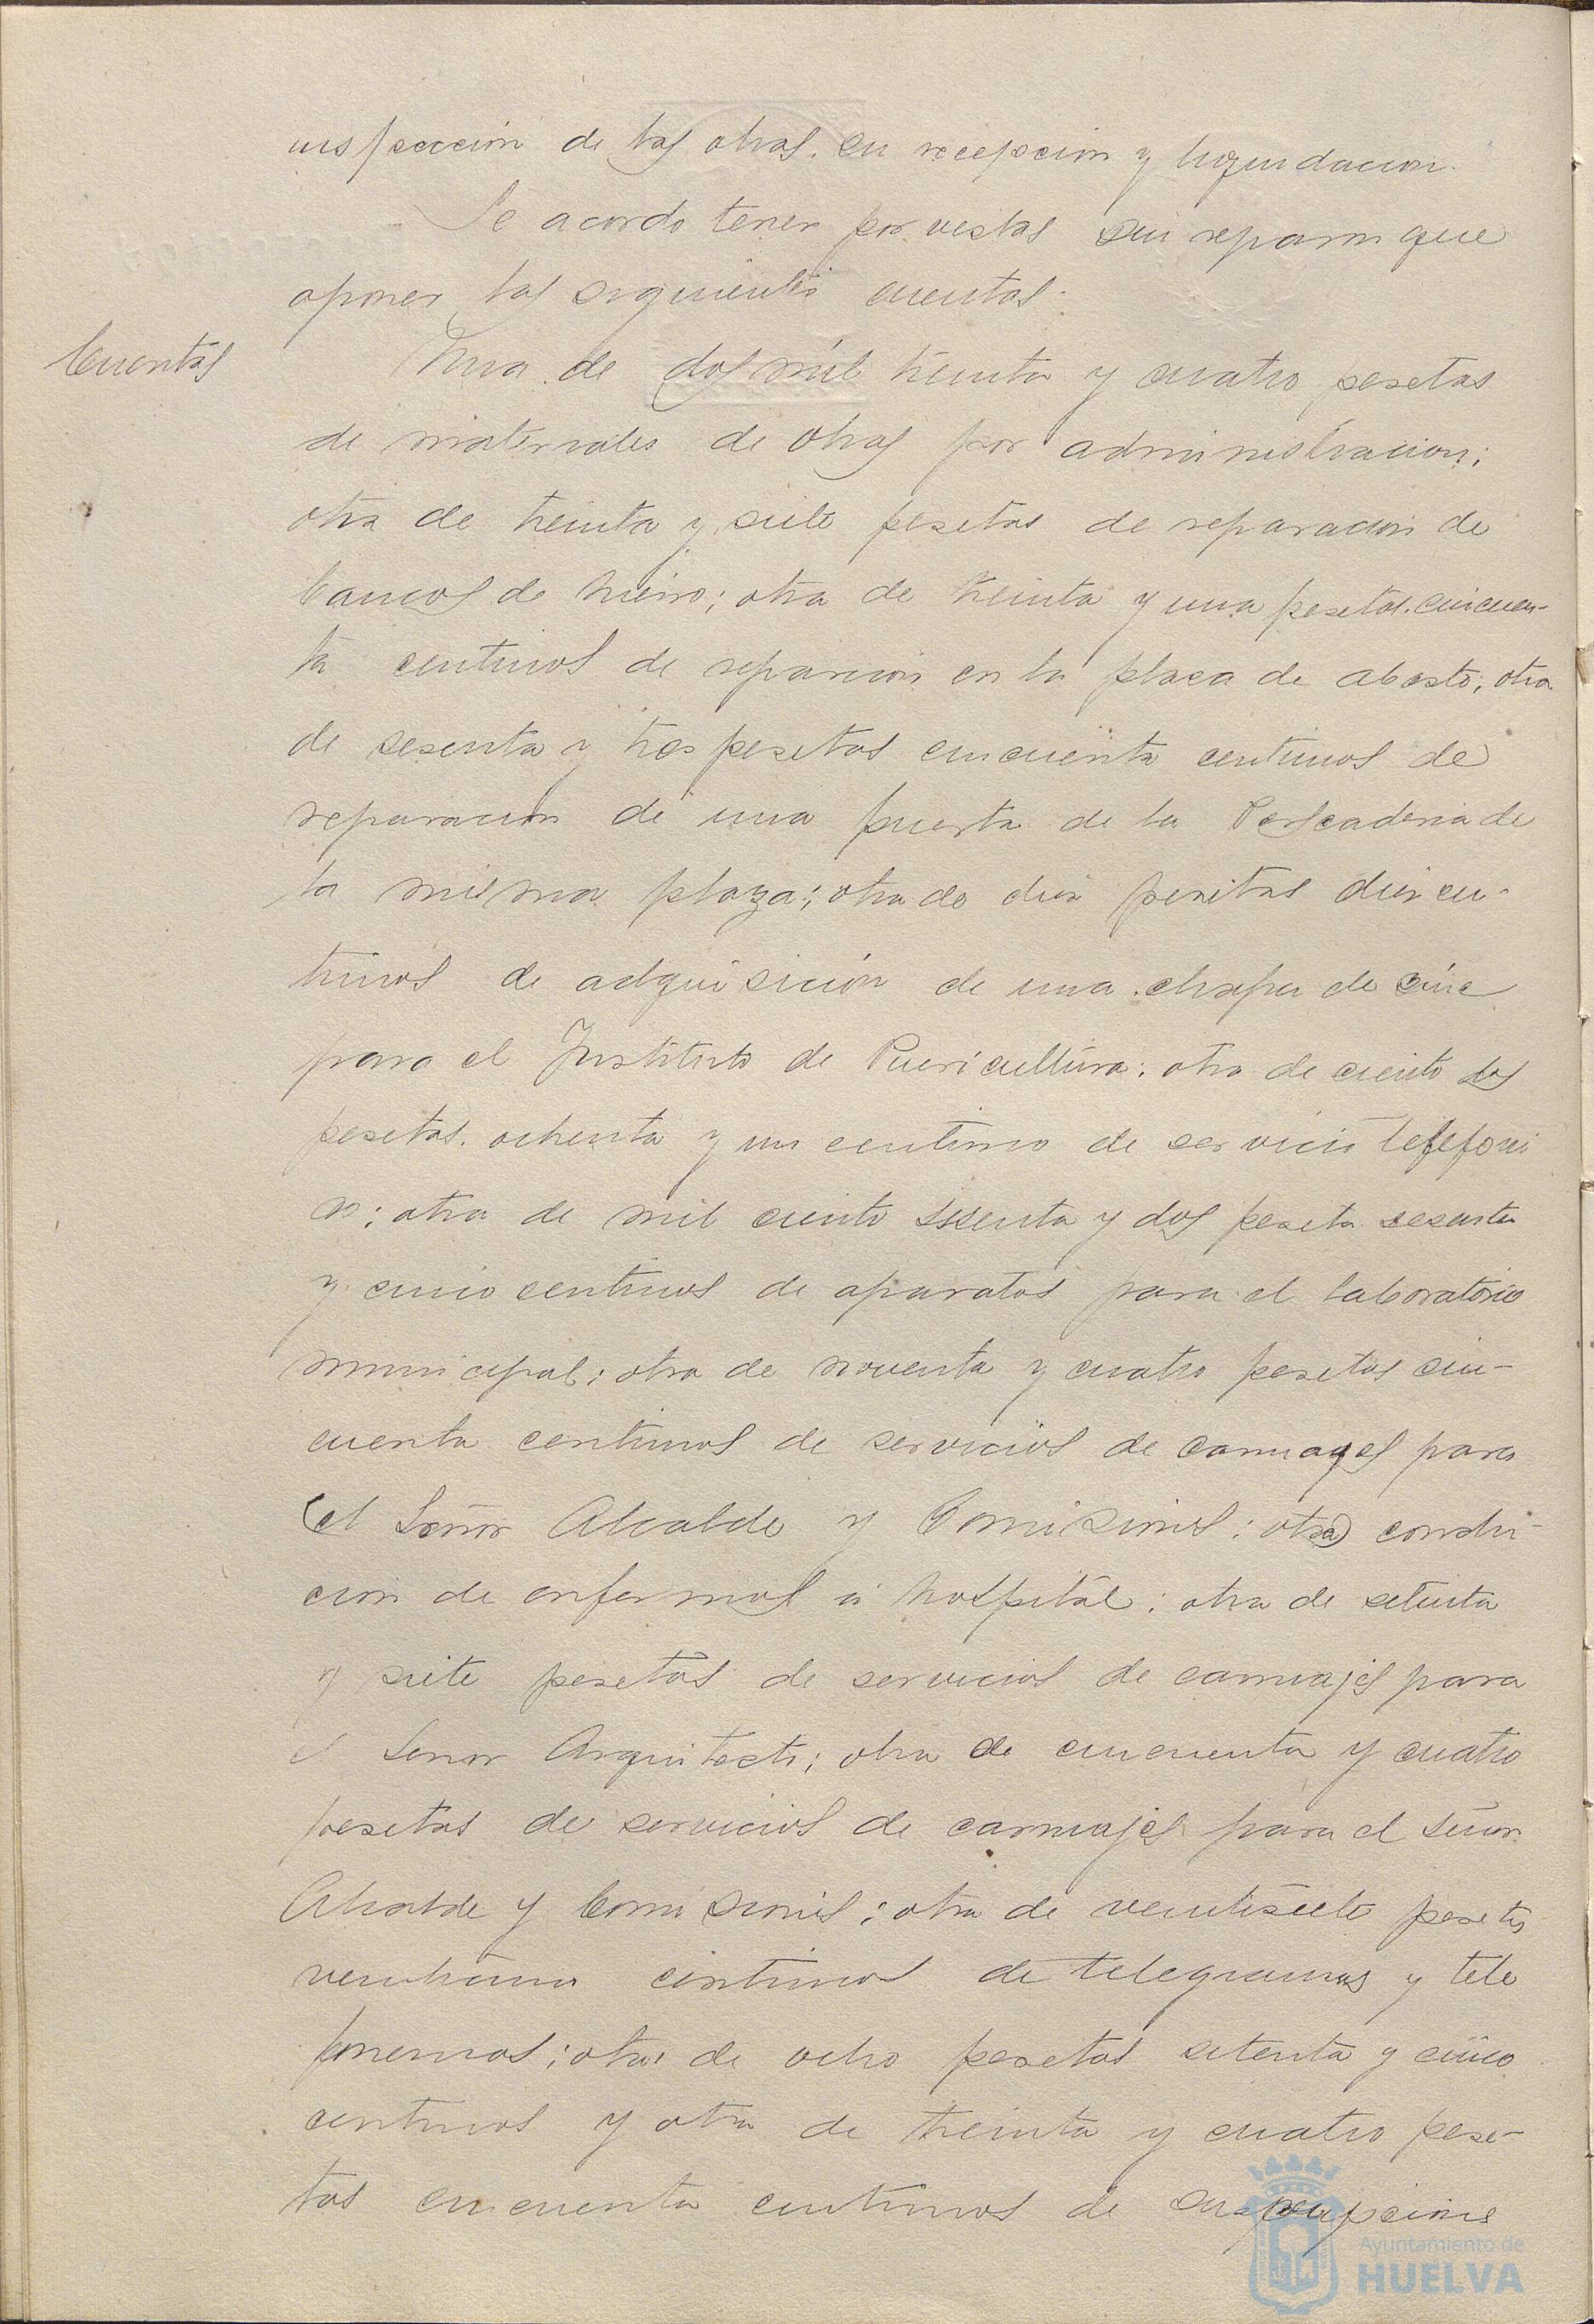 inspección de las obras. su recepcion y liquidacion.
Se acordo tener por vistas sin reparos que
oponer las siguientes cuentas:
Cuentas
Una de dos mil treinta y cuatro pesetas
de materiales de obras por administracion;
otra de treinta y siete pesetas de reparacion de
bancos de hierro; otra de treinta y una pesetas. cincuen-
ta centimos de reparacion en la plaza de abasto; otra
de sesenta y tres pesetas cincuenta centimos de
reparacion de una puerta de la Pescaderia de
la misma plaza; otra de diez pesetas diez cen-
timos de adquisición de una chapa de cinc
para el Instituto de Puericultura; otra de ciento dos
pesetas. ochenta y un centimo de servicio telefoni
co; otra de mil ciento sesenta y dos peseta sesenta
y cinco centimos de aparatos para el laboratorio
municipal; otra de noventa y cuatro pesetas cin-
cuenta centimos de servicios de carruages para
el Señor Alcalde y Comisiones; otra conduc-
cion de enfermos a hospital; otra de setenta
y siete pesetas de servicios de carruajes para
el Señor Arquitecto; otra de cincuenta y cuatro
pesetas de servicios de carruajes para el Señor
Alcalde y Comisiones; otra de veintisiete pesetas
centimos de telegramas y tele
fonemas; otra de ocho pesetas setenta y cinco
centimos y otra de treinta y cuatro pese-
tas cincuenta centimos de suscripciones
Ayuntamiento de
HUELVA